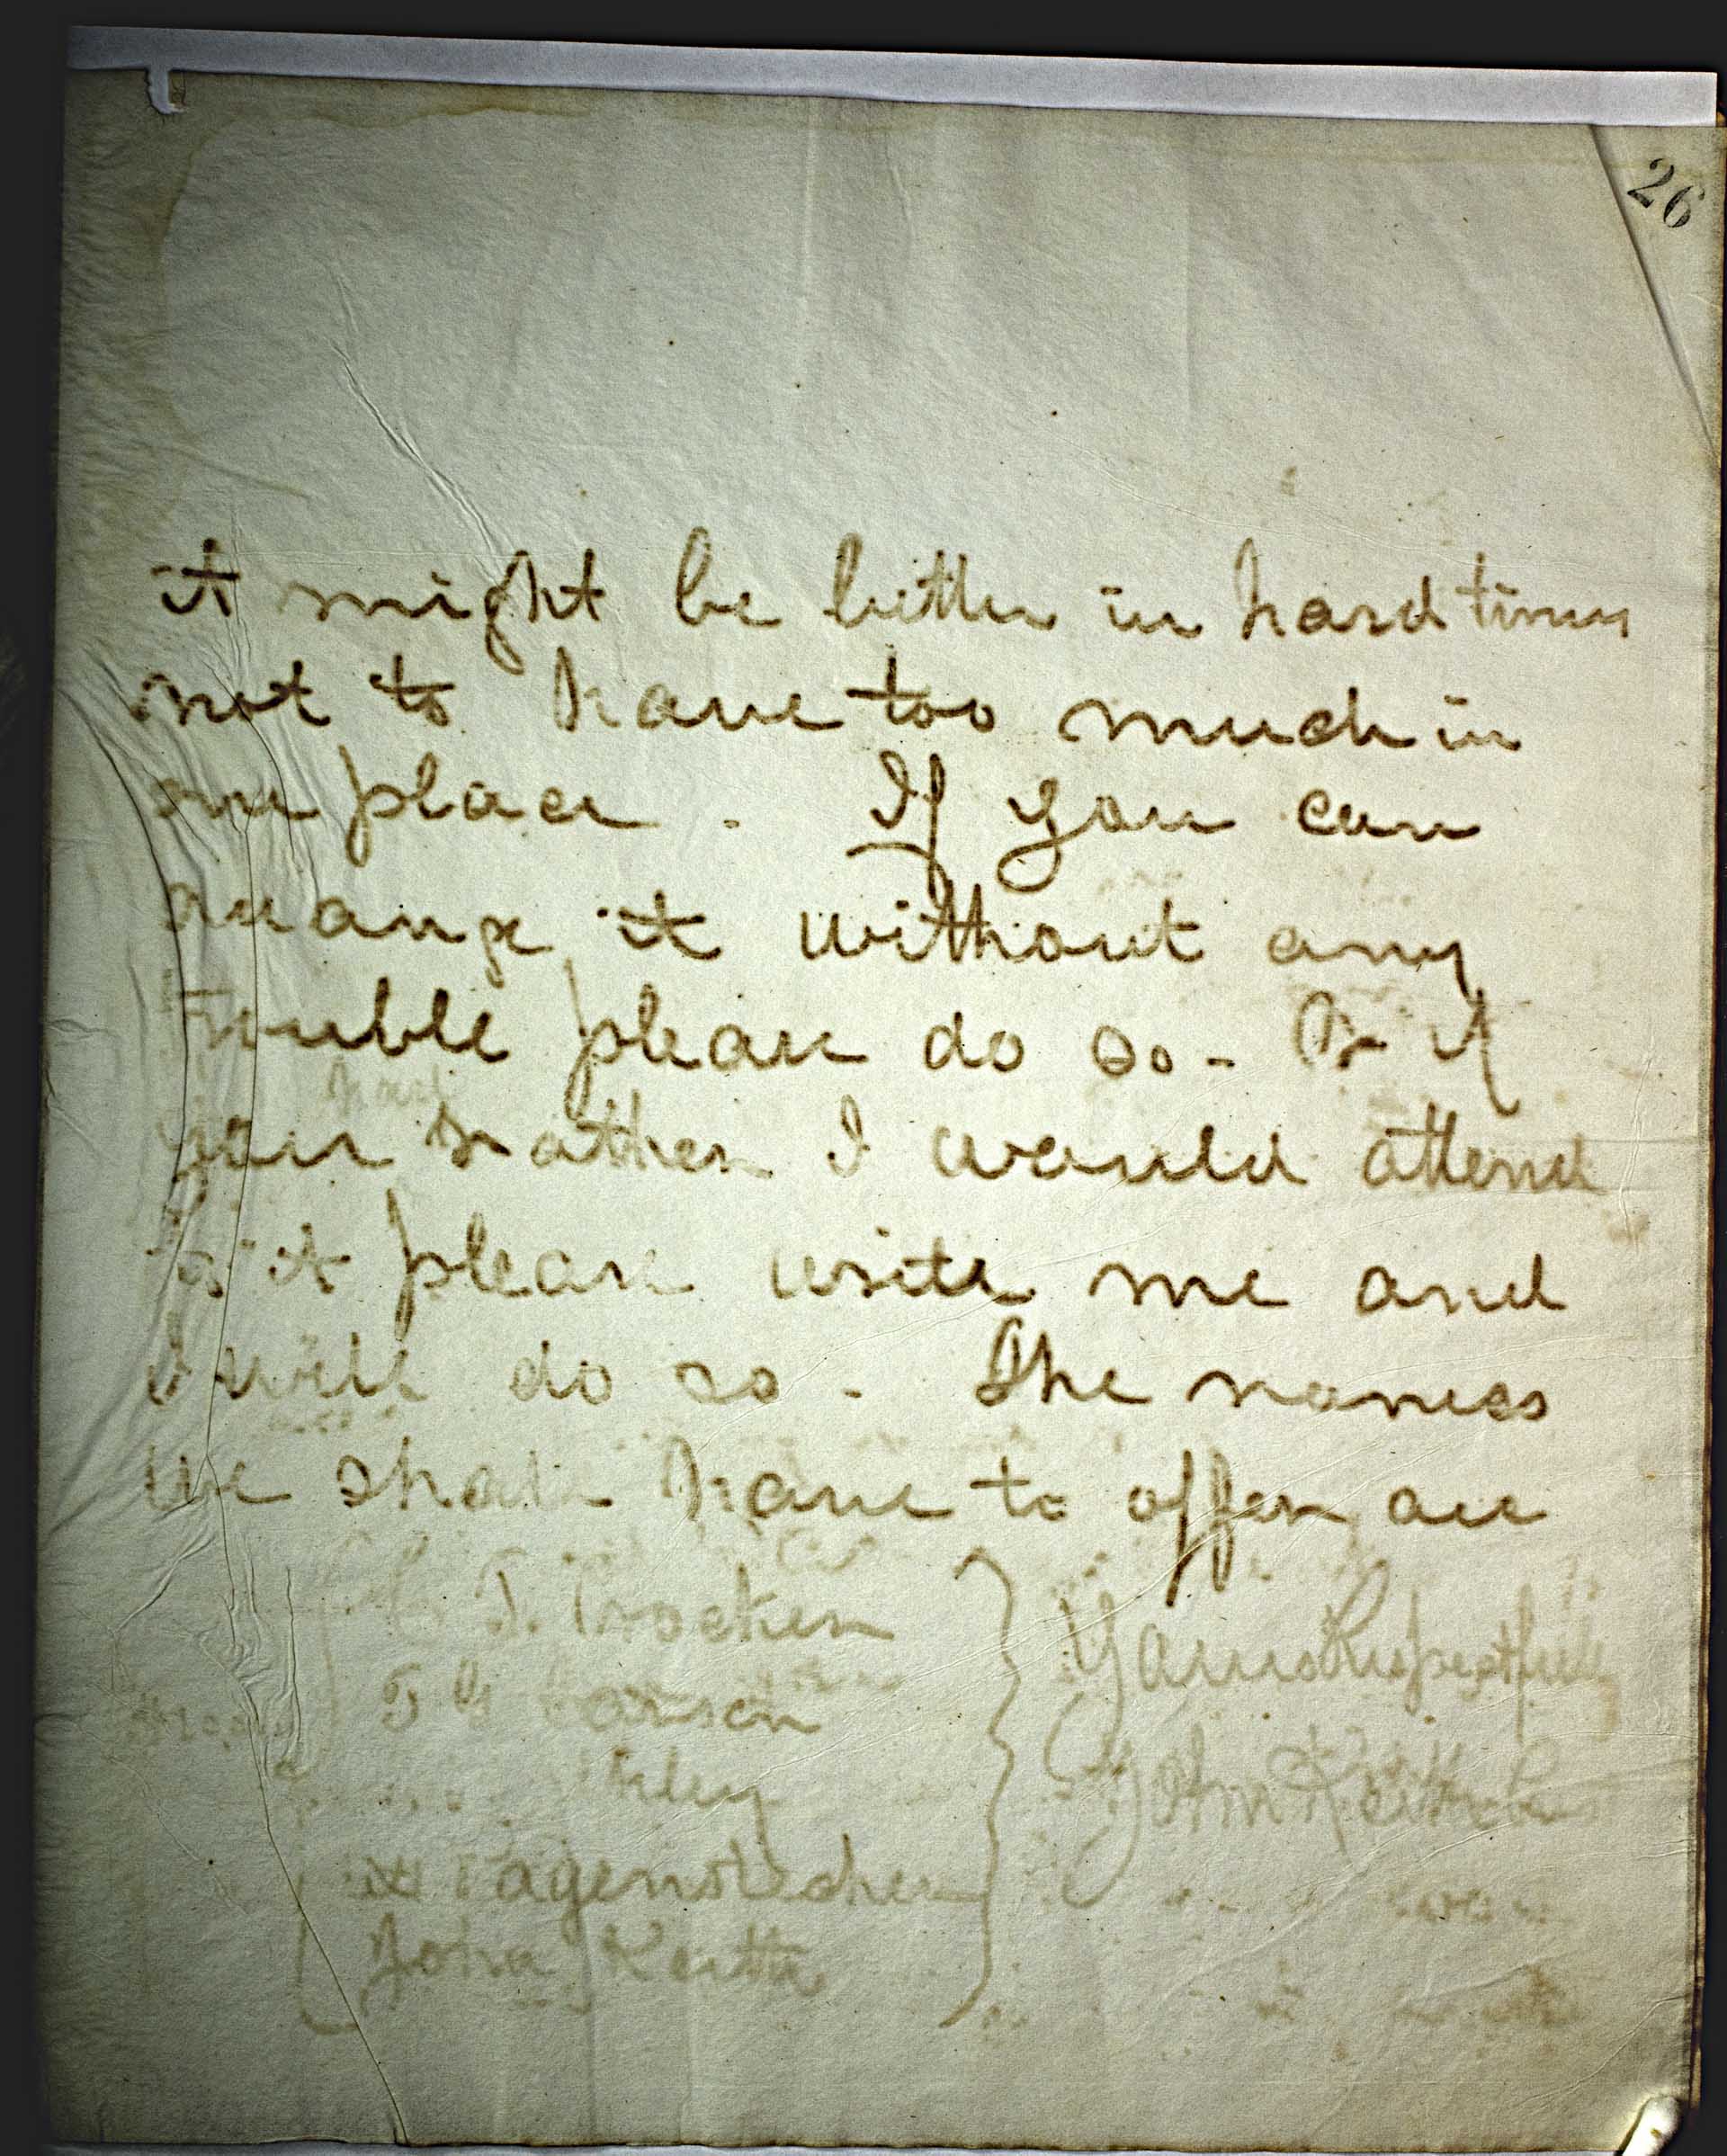 26
it might be better in hard times
not to have too much in
one place. If you can
arrange it without any
trouble please do so - Or if
your rather I would attend
to it please write me and
I will do so. The names
we shall have to offer are
T. Brocken
Carsen
Pagenstecher
John Keith
Yours Respectfully
John Keith